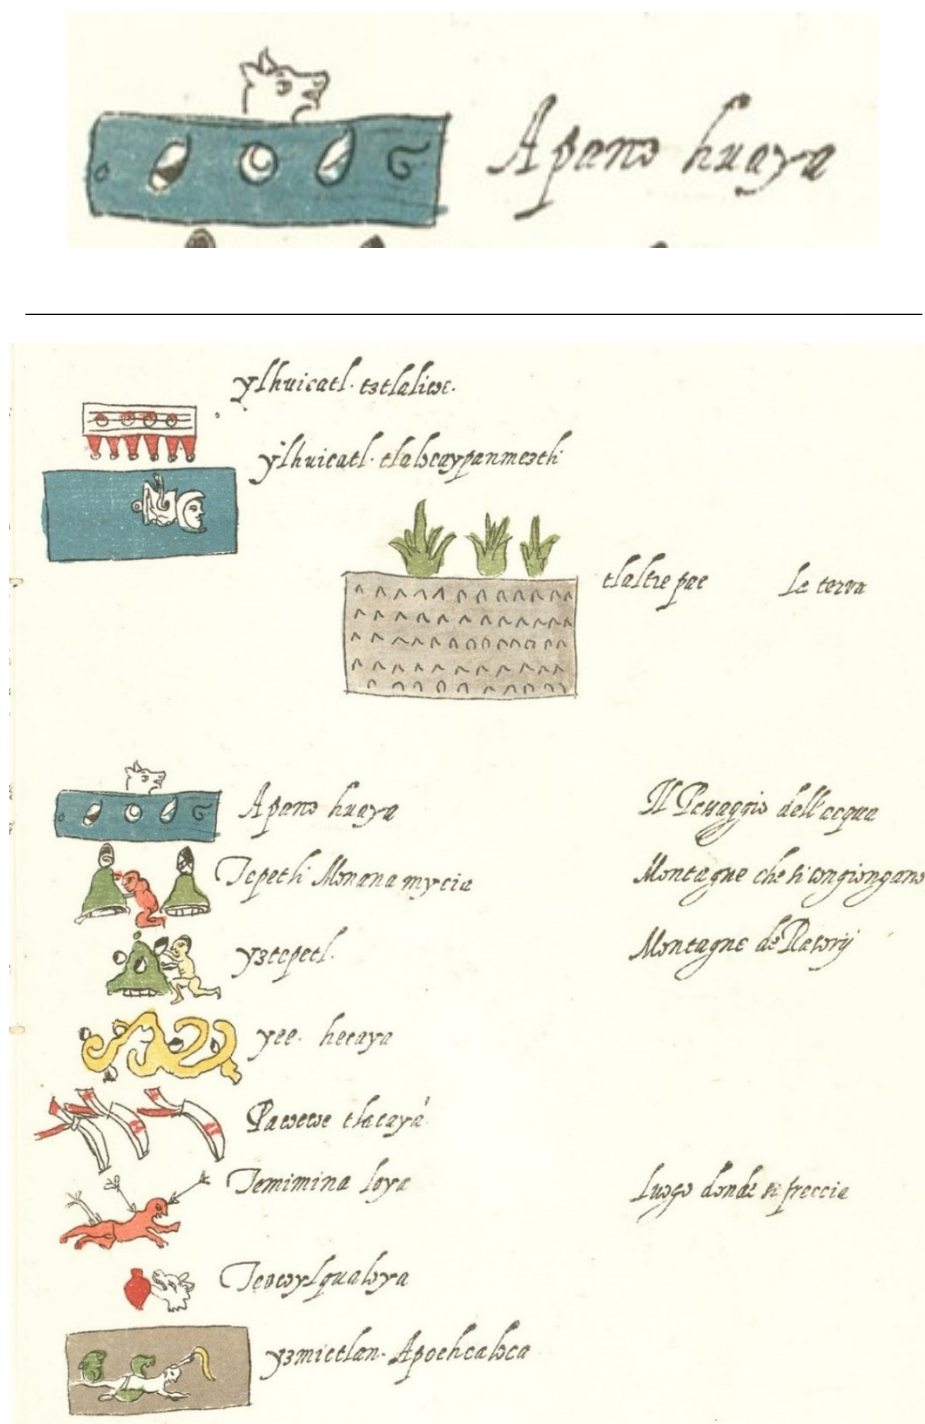 Apano huaya
ylhuicatl. tztlalicoc.
ylhuicatl. tlalocaypanmeztli
tlalticpac La terra
Apano huaya Il Passaggio dell'acqua
Tepetli Monanamycia Montagne che si congiongano
yztepetl. Montagne de Rasorij
yee. hecaya
Pacoecoe tlacaya
Temimina loya Luogo dove si freccia
Teocoylqualoya
yzmictlan. Apochcaloca